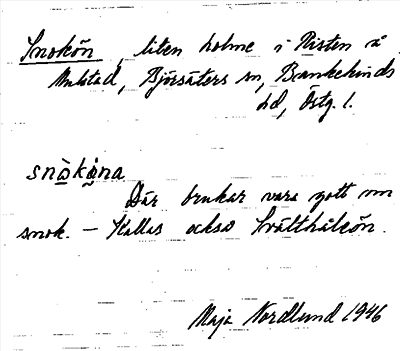 Snokön, liten holme i Risten å
Mulstad, Björsäters sn, Bankekinds
hd, Östg. l.
snòkǫ̀na
Där brukar vara gott om
snok. – Kallas också Svälthålsön.
Maja Nordlund 1946